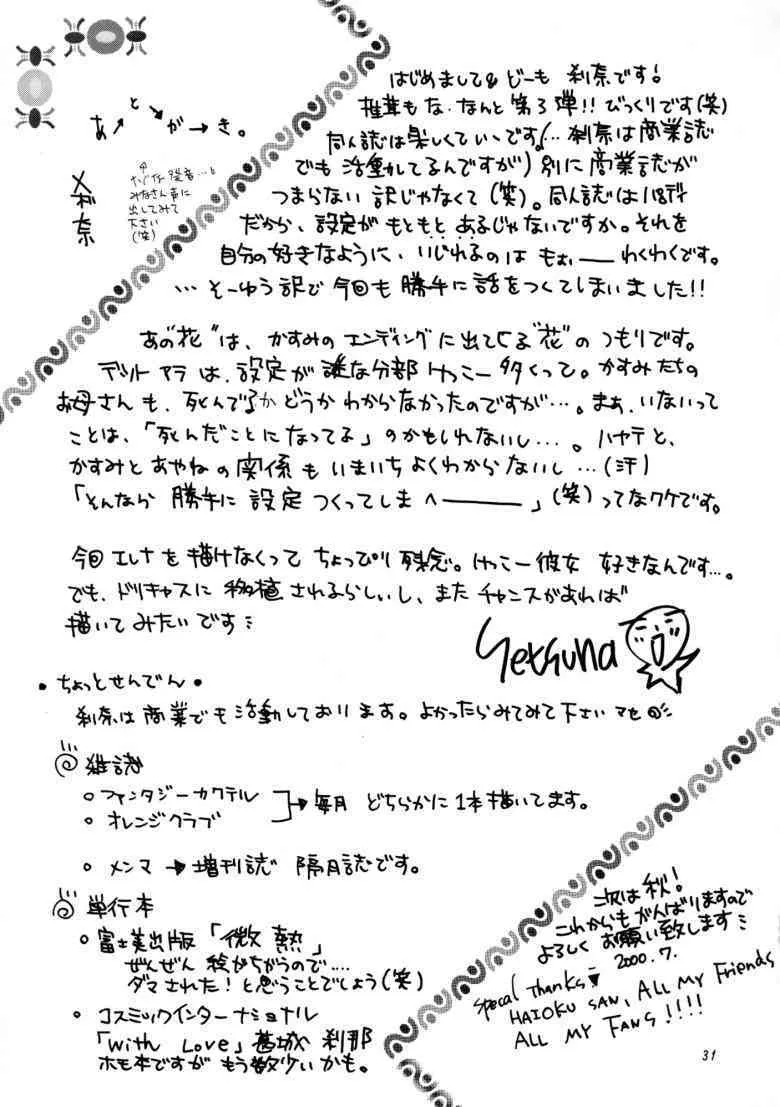 あとがき。
刹奈
みなさん声に
出してみて
下さい
(笑)
はじめまして&どーも 刹奈です!
なんと第3弾!! びっくりです(笑)
同人誌は楽しくていいです!(… 刹奈は商業誌
でも活動してるんですが) 別に商業誌が
つまらない訳じゃなくて(笑)。同人誌はパロディ
だから、設定がもともとあるじゃないですか。それを
自分の好きなように、いじれるのは もぉーわくわくです。
…そーゆう訳で今回も勝手に話をつくてしまいました!!
あの“花”は、かすみのエンディングに出てくる“花”のつもりです。
デットアラは、設定が謎な分部けっこー多くって。かすみたちの
お母さんも、死んでるかどうかわからなかったのですが…。まぁ、いないって
ことは、「死んだことになってる」のかもしれないし…。ハヤテと、
かすみとあやねの関係もいまいちよくわからないし…(汗)
「そんなら勝手に設定つくってしまへー」(笑)ってなワケです。
今回エレナを描けなくってちょっぴり残念。けっこー彼女 好きなんです…。
でも、ドリキャスに移植されるらしいし、またチャンスがあれば
描いてみたいです
Setsuna
・ちょっとせんでん・
刹奈は商業でも活動しております。よかったらみてみて下さいマセ
雑誌
○ファンタジーカクテル
○オレンジクラブ
→毎月 どちらかに1本描いてます。
○メンマ→増刊誌 隔月誌です。
単行本
○富士美出版「微熱」
ぜんぜん絵がちがうので…。
ダマされた!と思うことでしょう(笑)
○コスミックインターナショナル
「With Love」葛城 刹那
ホモ本ですがもう数少いかも。
次は秋!
これからもがんばりますので
よろしくお願い致します
2000.7.
Specal Thanks
HAIOKU SAN, ALL MY Friends
ALL MY FANS!!!!
31